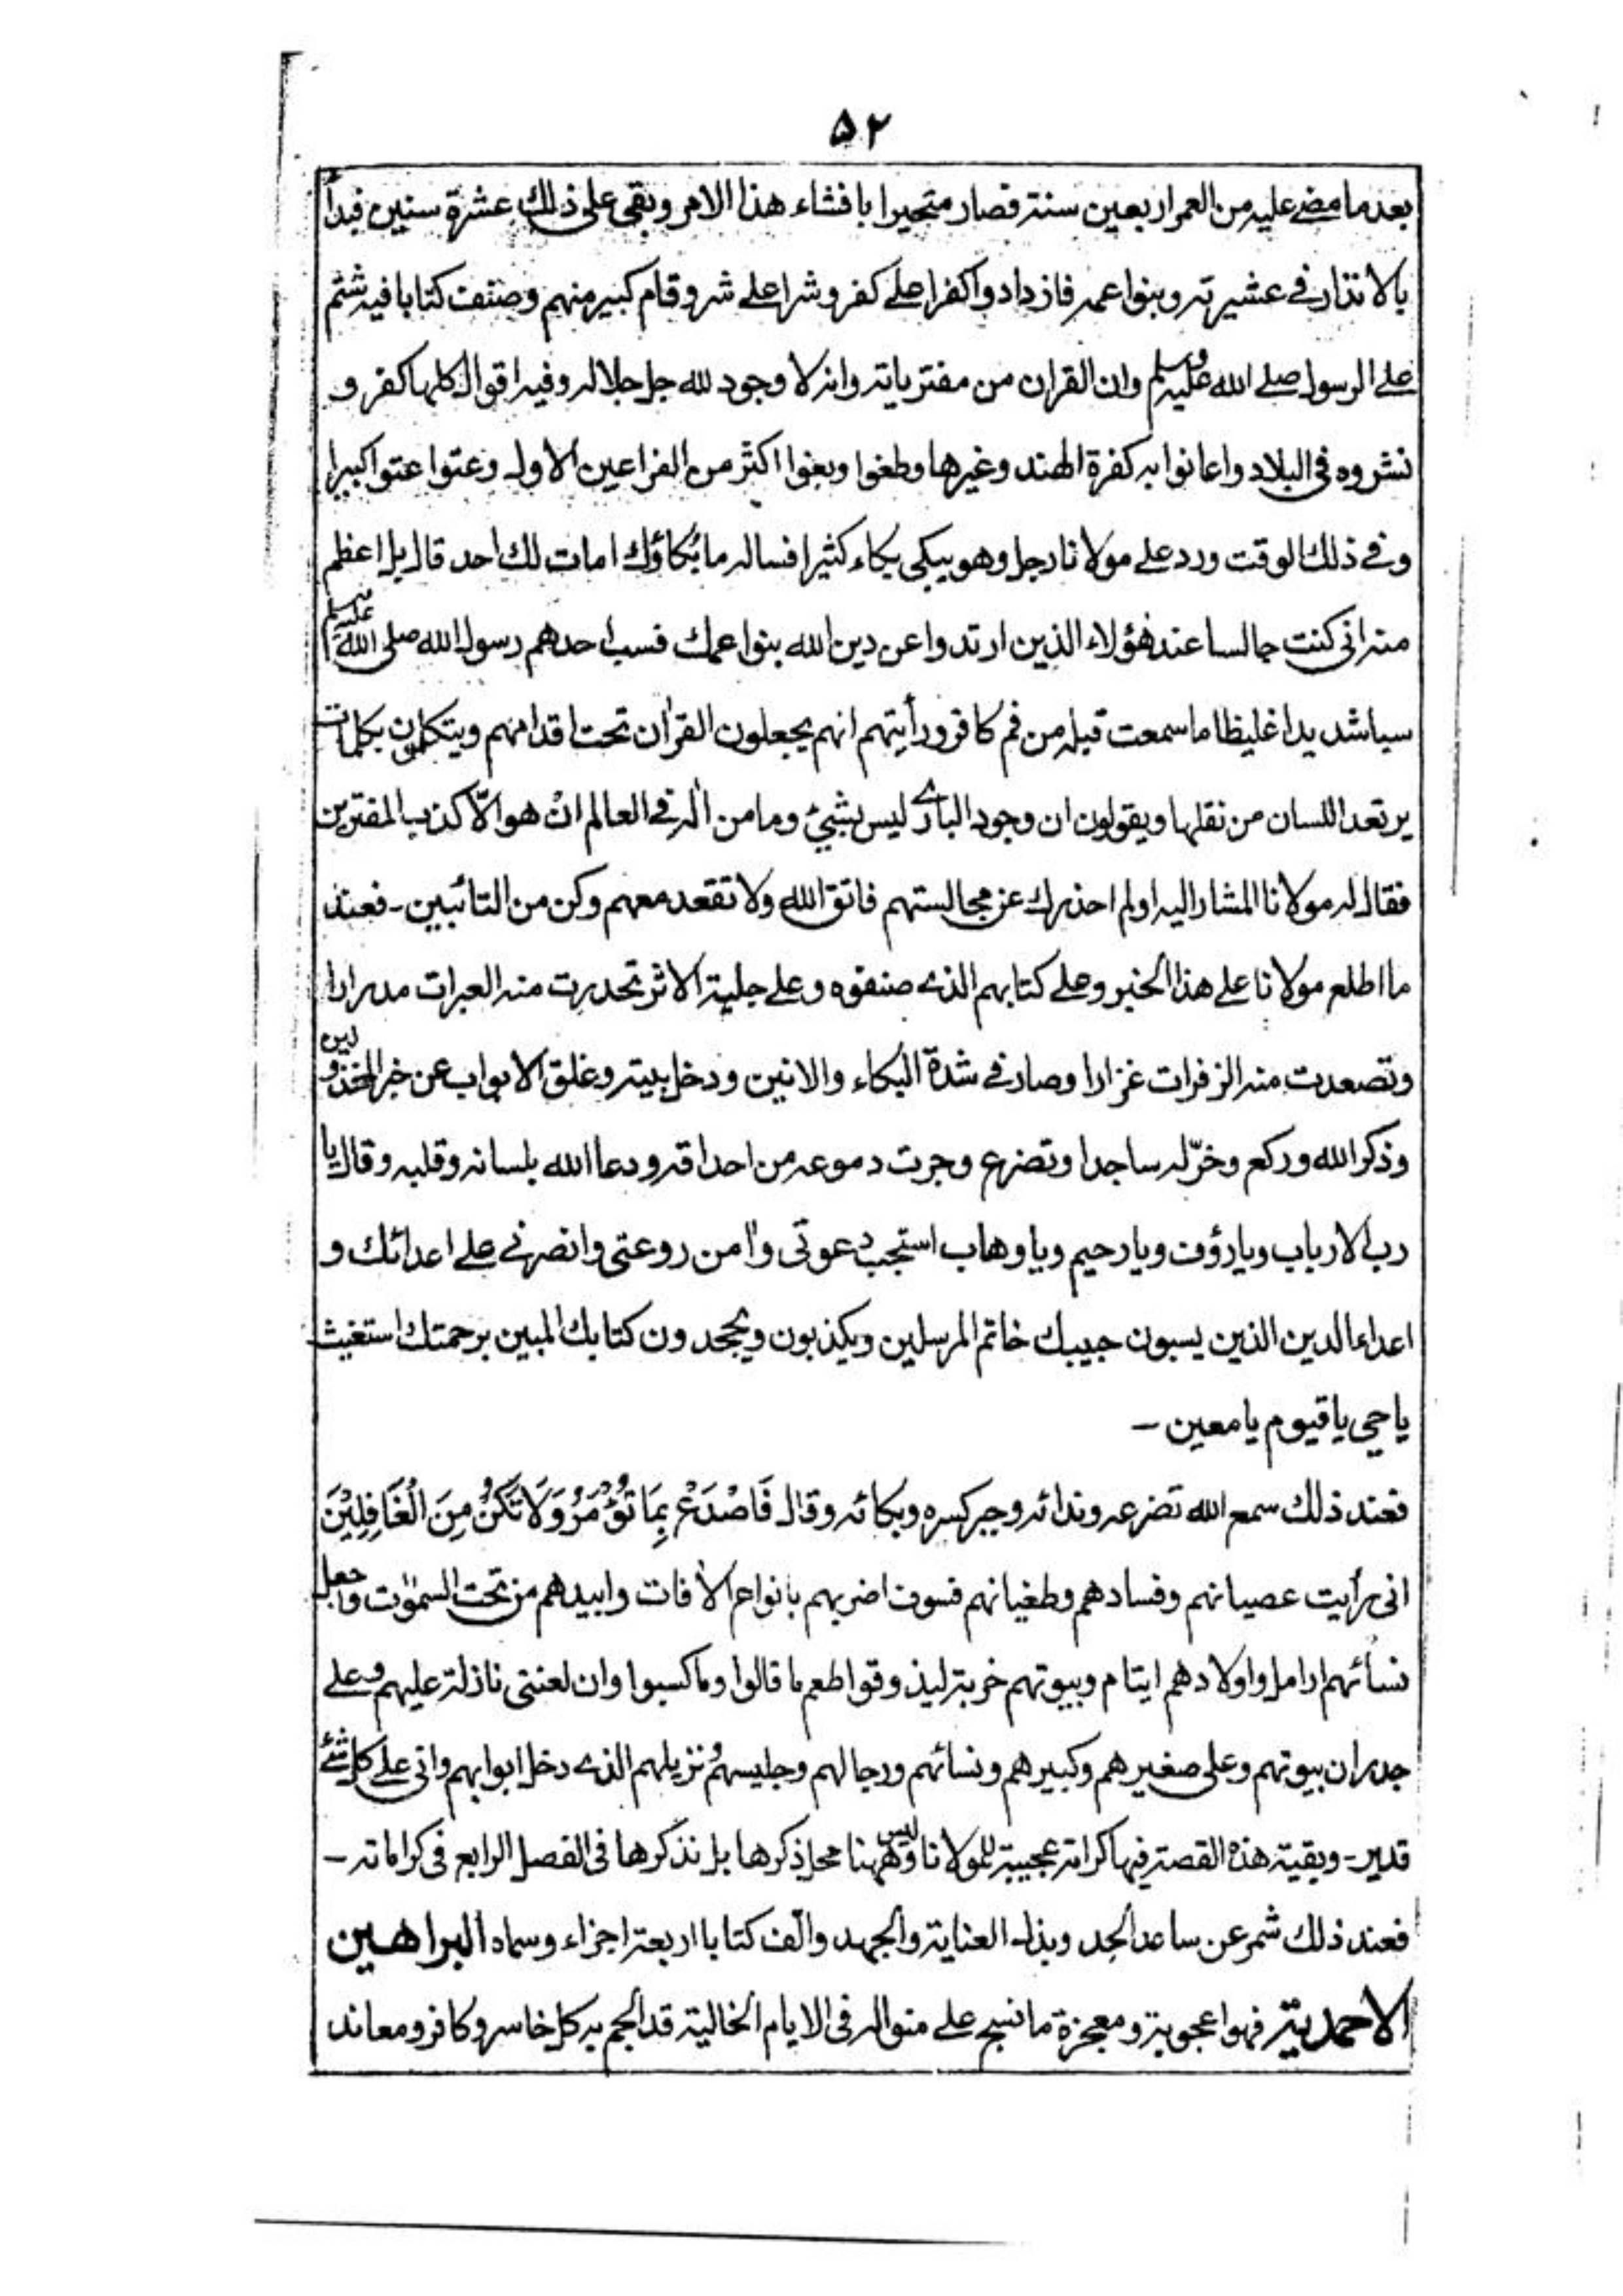 ۵۲
بعد ما مضے عليه من العمر اربعين سنة فصار متحيرا بافشاء هذا الامر وبقى على ذلك عشرة سنين فبدأ
بالانذار في عشيرته وبنوا عمه فازدادوا كفرا علے كفر وشرا علے شر وقام كبير منهم وصنف كتابا فيه شتم
علے الرسول صلے الله عليه وسلم وان القران من مفترياته وانه لا وجود لله جل جلاله وفيه اقوال كلها كفر و
نشروه فى البلاد واعانوا به كفرة الهند وغيرها وطغوا وبغوا اكثر من الفراعين الاول وعتوا عتوا كبيرا
وفے ذلك الوقت ورد علے مولانا رجل وهو يبكى بكاء كثيرا فساله ما بُكاؤك امات لك احد قال بل اعظم
منه انى كنت جالسا عند هؤلاء الذين ارتدوا عن دين الله بنوا عمك فسب احدهم رسول الله صلى الله عليه وسلم
سبا شديدا غليظا ما سمعت قبله من فم كافر ورأيتهم انهم يجعلون القرٰان تحت اقدامهم ويتكلمون بكلمات
يرتعد اللسان من نقلها ويقولون ان وجود البارے ليس بشيئ وما من اله فى العالم ان هو الّا كذب المفترين
فقال له مولانا المشار اليه اولم احذرك عن مجالستهم فاتق الله ولا تقعد معهم وكن من التائبين - فعند
ما اطلع مولانا علے هذا الخبر وعلے كتابهم الذے صنفوه وعلے جلية الاثر تحدرت منه العبرات مدرارا
وتصعدت منه الزفرات غزارا وصار فے شدة البكاء والانين ودخل بيته وغلق الابواب عن خبر المخذولين
وذكر الله وركع وخرّ له ساجدا وتضرع وجرت دموعه من احداقه ودعا الله بلسانه وقلبه وقال يا
رب الارباب ويا رؤف ويا رحيم ويا وهاب استجب دعوتى وٰامن روعتى وانصرنے علے اعدائك و
اعداء الدين الذين يسبون حبيبك خاتم المرسلين ويكذبون ويجحدون كتابك المبين برحمتك استغيث
يا حي يا قيوم يا معين -
فعند ذلك سمع الله تضرعه وندائه وجبر كسره وبكائه وقال فَاصْدَعْ بِمَا تُؤْمَرُ وَلَا تَكُنْ مِنَ الْغَافِلِيْنَ
انى رأيت عصيانهم وفسادهم وطغيانهم فسوف اضربهم بانواع الاٰفات وابيدهم من تحت السمٰوٰت واجعل
نسائهم ارامل واولادهم ايتام وبيوتهم خربة ليذوقوا طعم ما قالوا وما كسبوا وان لعنتى نازلة عليهم وعلے
جدران بيوتهم وعلى صغيرهم وكبيرهم ونسائهم ورجالهم وجليسهم ونزيلهم الذے دخل ابوابهم وانى علے كل شئے
قدير - وبقية هذه القصة فيها كرامة عجيبة لمولانا وليس ههنا محل ذكرها بل نذكرها فى الفصل الرابع فى كراماته -
فعند ذلك شمر عن ساعد الجد وبذل العناية والجهد والّف كتابا اربعة اجزاء وسماه البراهين
الاحمدية فهو اعجوبة ومعجزة ما نسج علے منواله فى الايام الخالية قد الجم به كل خاسر وكافر ومعاند